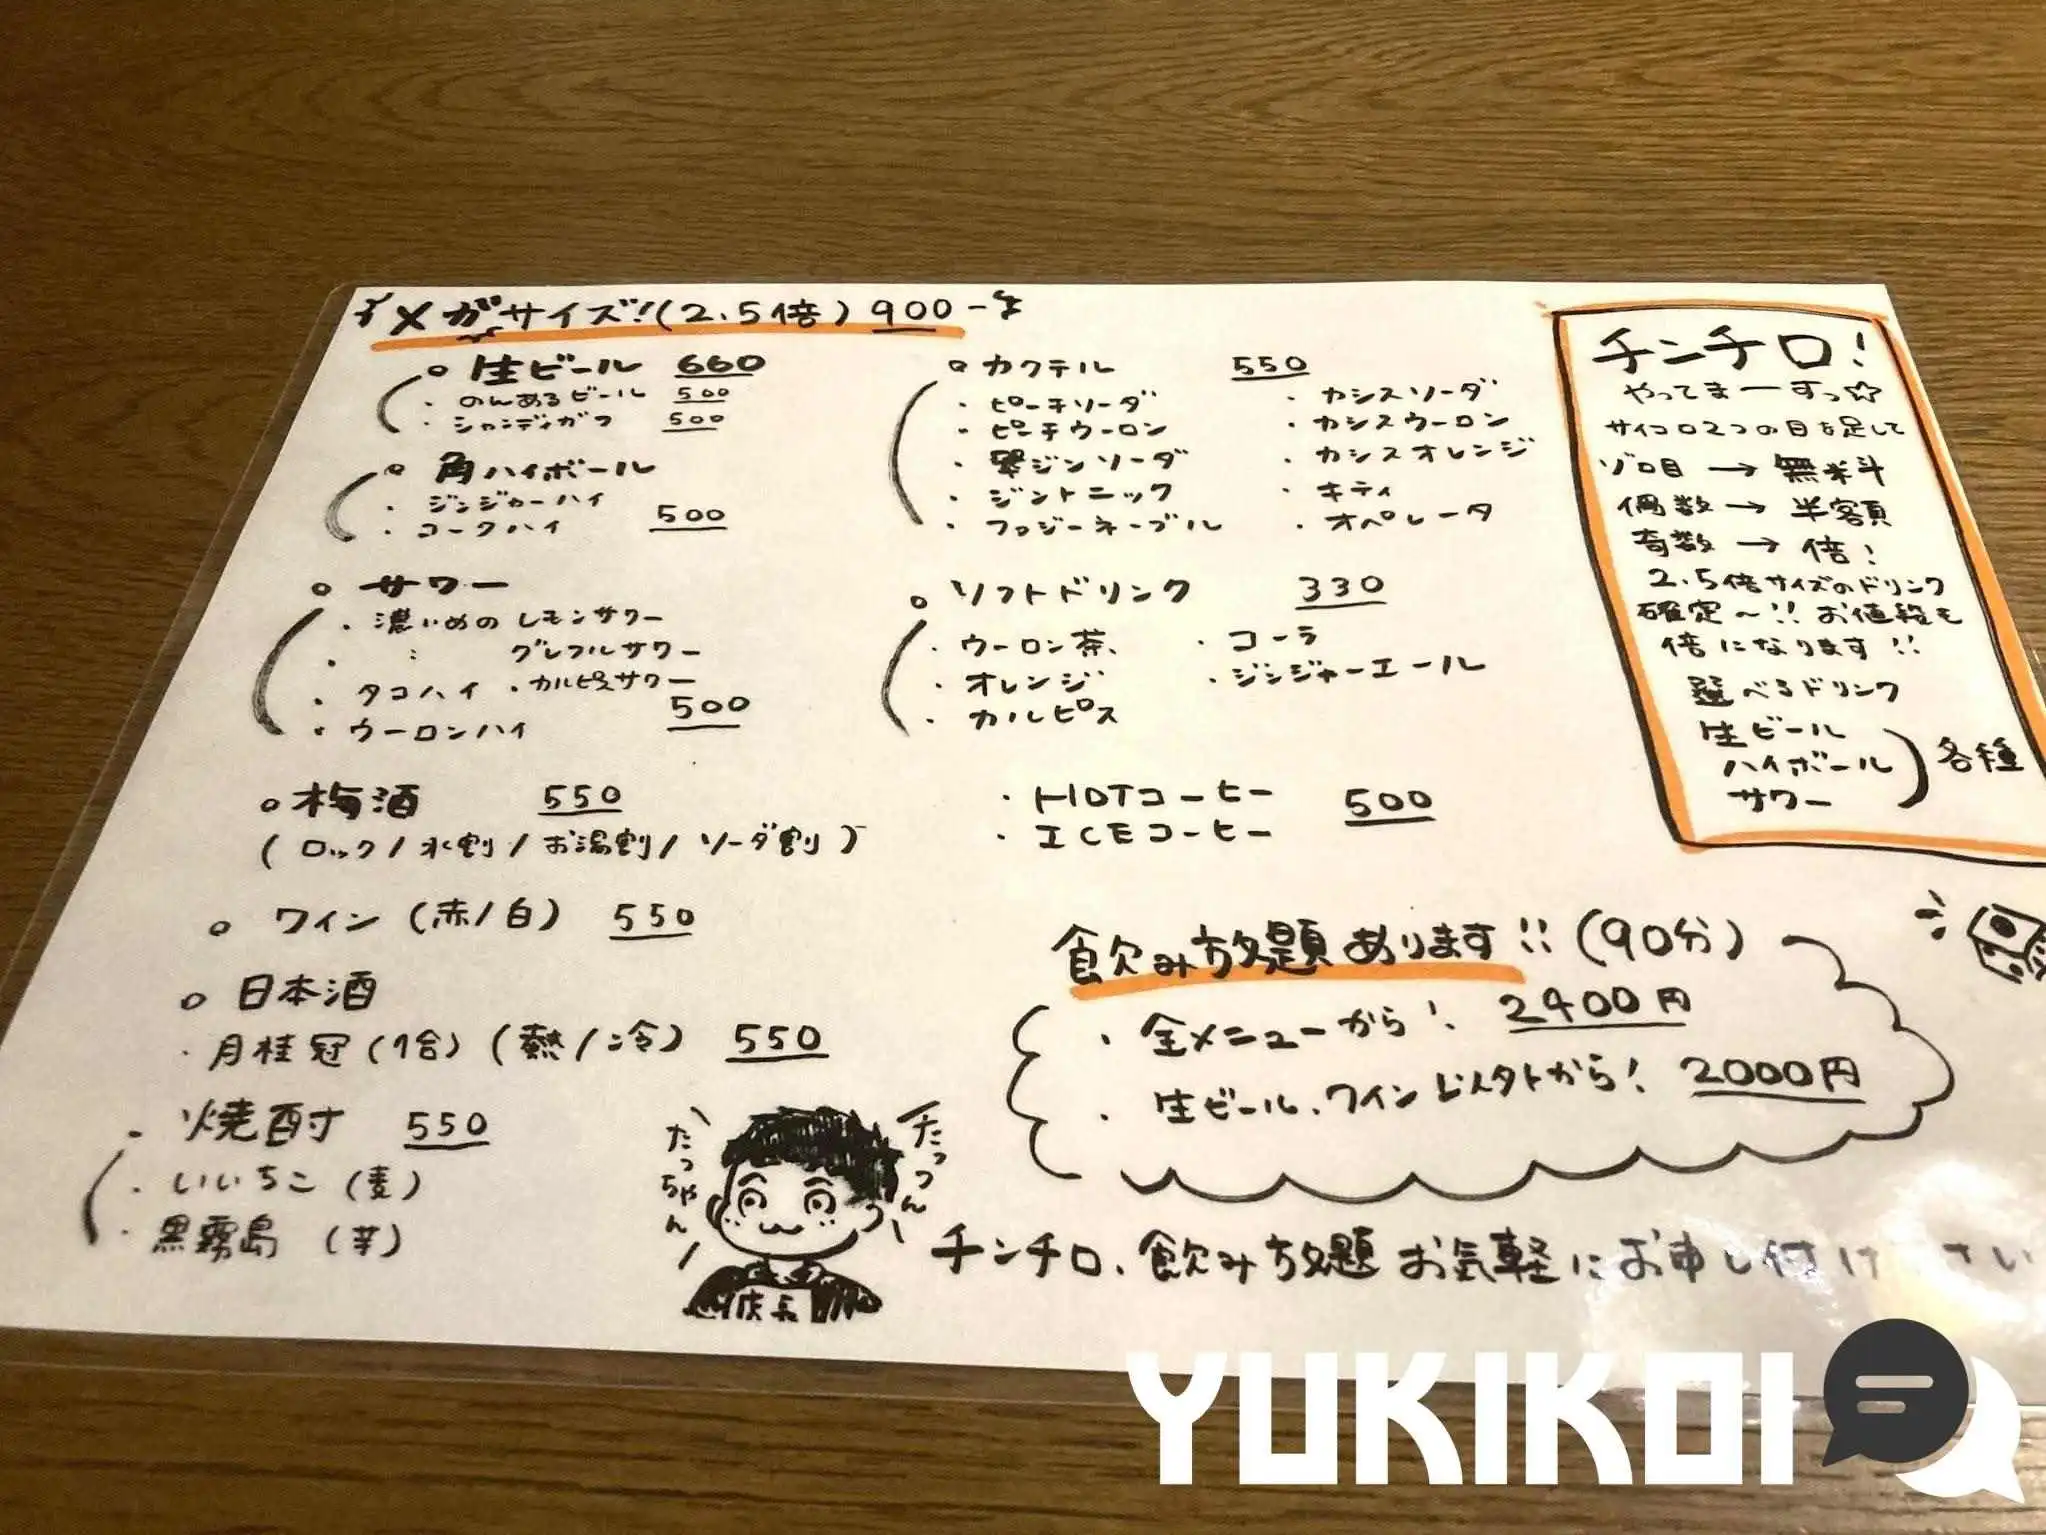 メガサイズ!(2.5倍) 900-
○ 生ビール 660
・のんあるビール 500
・シャンディガフ 500
○ 角ハイボール
・ジンジャーハイ
・コークハイ 500
○ サワー
・濃いめの レモンサワー
・ 〃 グレフルサワー
・タコハイ ・カルピスサワー
・ウーロンハイ 500
○ 梅酒 550
(ロック/水割/お湯割/ソーダ割)
○ ワイン (赤/白) 550
○ 日本酒
・月桂冠(1合)(熱/冷) 550
・焼酎 550
・いいちこ (麦)
・黒霧島 (芋)
○ カクテル 550
・ピーチソーダ
・ピーチウーロン
・翠ジンソーダ
・ジントニック
・ファジーネーブル
・カシスソーダ
・カシスウーロン
・カシスオレンジ
・キティ
・オペレータ
○ ソフトドリンク 330
・ウーロン茶
・オレンジ
・カルピス
・コーラ
・ジンジャーエール
・HOTコーヒー
・ICEコーヒー 500
チンチロ!
やってまーすっ☆
サイコロ2つの目を足して
ゾロ目 → 無料
偶数 → 半額
奇数 → 倍!
2.5倍サイズのドリンク
確定〜!!お値段も
倍になります!!
選べるドリンク
生ビール
ハイボール
サワー
各種
飲み放題あります!!(90分)
・全メニューから! 2400円
・生ビール、ワイン以外から! 2000円
たっちゃん!
たっつん!
店長
チンチロ、飲み放題お気軽にお申し付け さい
YUKIKOI